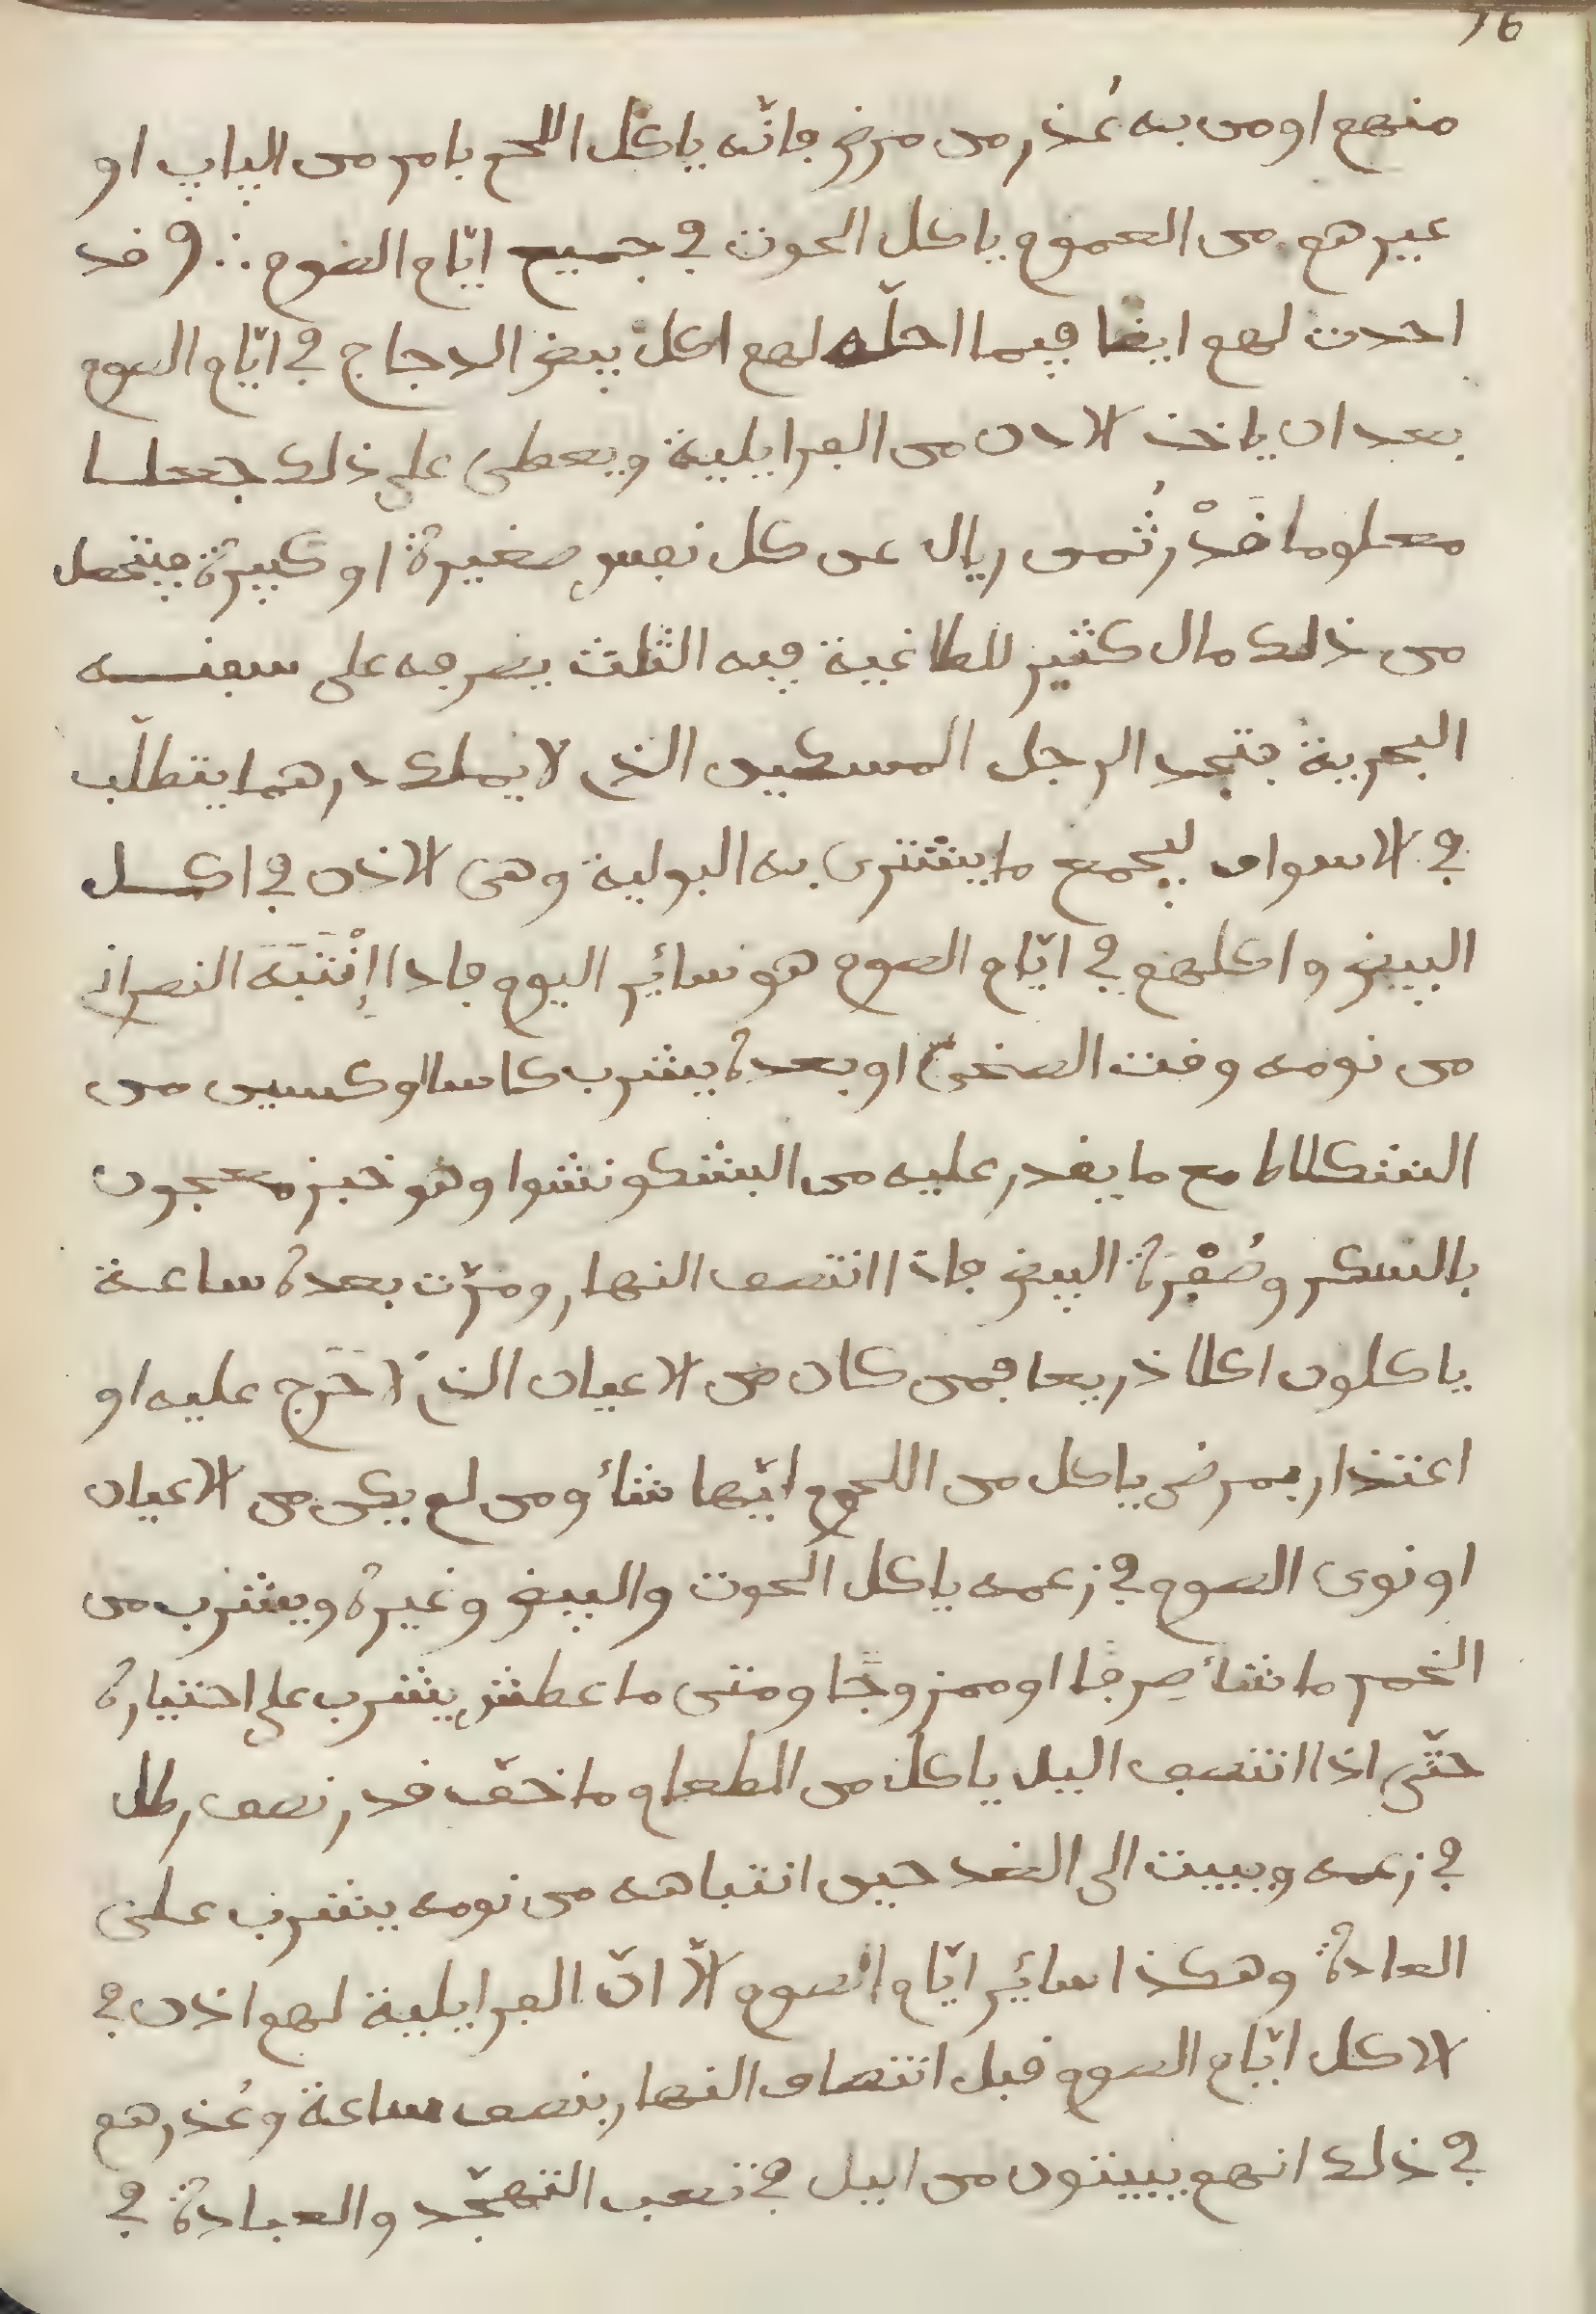 76
منهم او من به عُذر من مرض فانّه ياكل اللحم بامر من الپاپ او
غيرهم من العموم ياكل الحوت في جميع ايّام الصوم ∴ وقد
احدث لهم ايضا فيما احلّه لهم اكل بيض الدجاج في ايّام الصوم
بعد ان ياخذ الاذن من الفرايلية ويعطى على ذلك جعلا
معلوما قَدْر ثُمن ريال عن كل نفسٍ صغيرة او كبيرة فيتحصل
من ذلك مال كثير للطاغية فيه الثلث يصرفه على سفنه
البحرية فتجد الرجل المسكين الذي لا يملك درهما يتطلّب
في الاسواق ليجمع ما يشترى به البولية وهى الاذن في اكل
البيض واكلهم في ايّام الصوم هو سائير اليوم فاذا اِنْتَبَهَ النصراني
من نومه وقت الضحىّ او بعده يشرب كاسا او كسين من
الشكلاط مع ما يقدر عليه من البشكونشوا وهو خبز معجون
بالسكر وصُفْرة البيض فاذا انتصف النهار ومرّت بعده ساعة
ياكلون اكلا ذريعا فمن كان من الاعيان الذي لا حَرَج عليه او
اعتذار بمرض ياكل من اللحوم ايّها شأ ومن لم يكن من الاعيان
او نوى الصوم في زعمه ياكل الحوت والبيض وغيره ويشرب من
الخمر ما شأ صِرفًا او ممزوجًا ومتى ما عطش يشرب على اختياره
حتّى اذا انتصف اليل ياكل من الطعام ما خفّ قدر نصف رطل
في زعمه ويبيت الى الغد حين انتباهه من نومه يشرب على
العادة وهكذا سائير ايّام الصوم الّا انّ الفرايلية لهم اذن في
الاكل ايّام الصوم قبل انتصاف النهار بنصف ساعة وعُذرهم
في ذلك انهم يبيتون من اليل في تعب التهجّد والعبادة في